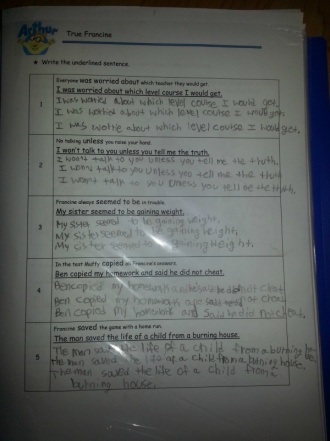 Arthur
True Francine
★ Write the underlined sentence.
Everyone was worried about which teacher they would get.
I was worried about which level course I would get.
1
I was worrie about which level course I would get.
I was worrie about which level course I would get.
I was worrie about which level course I would get.
No talking unless you raise your hand.
I won't talk to you unless you tell me the truth.
2
I won't talk to you unless you tell me the truth.
I won't talk to you unless you tell me the truth
I won't talk to you unless you tell me the truth.
Francine always seemed to be in trouble.
My sister seemed to be gaining weight.
3
My sister seemed to be gaining weight.
My sister seemed to be gaining weight.
My sister seemed to be gaining weight.
In the test Muffy copied all Francine's answers.
Ben copied my homework and said he did not cheat.
4
Ben copied my homework and said he did not cheat
Ben copied my homework and said he did not cheat.
Ben copied my homework and said he did not cheat.
Francine saved the game with a home run.
The man saved the life of a child from a burning house.
5
The man saved the life of a child from a burning house.
The man saved the life of a child from a burning house.
The man saved the life of a child from a
burning house.